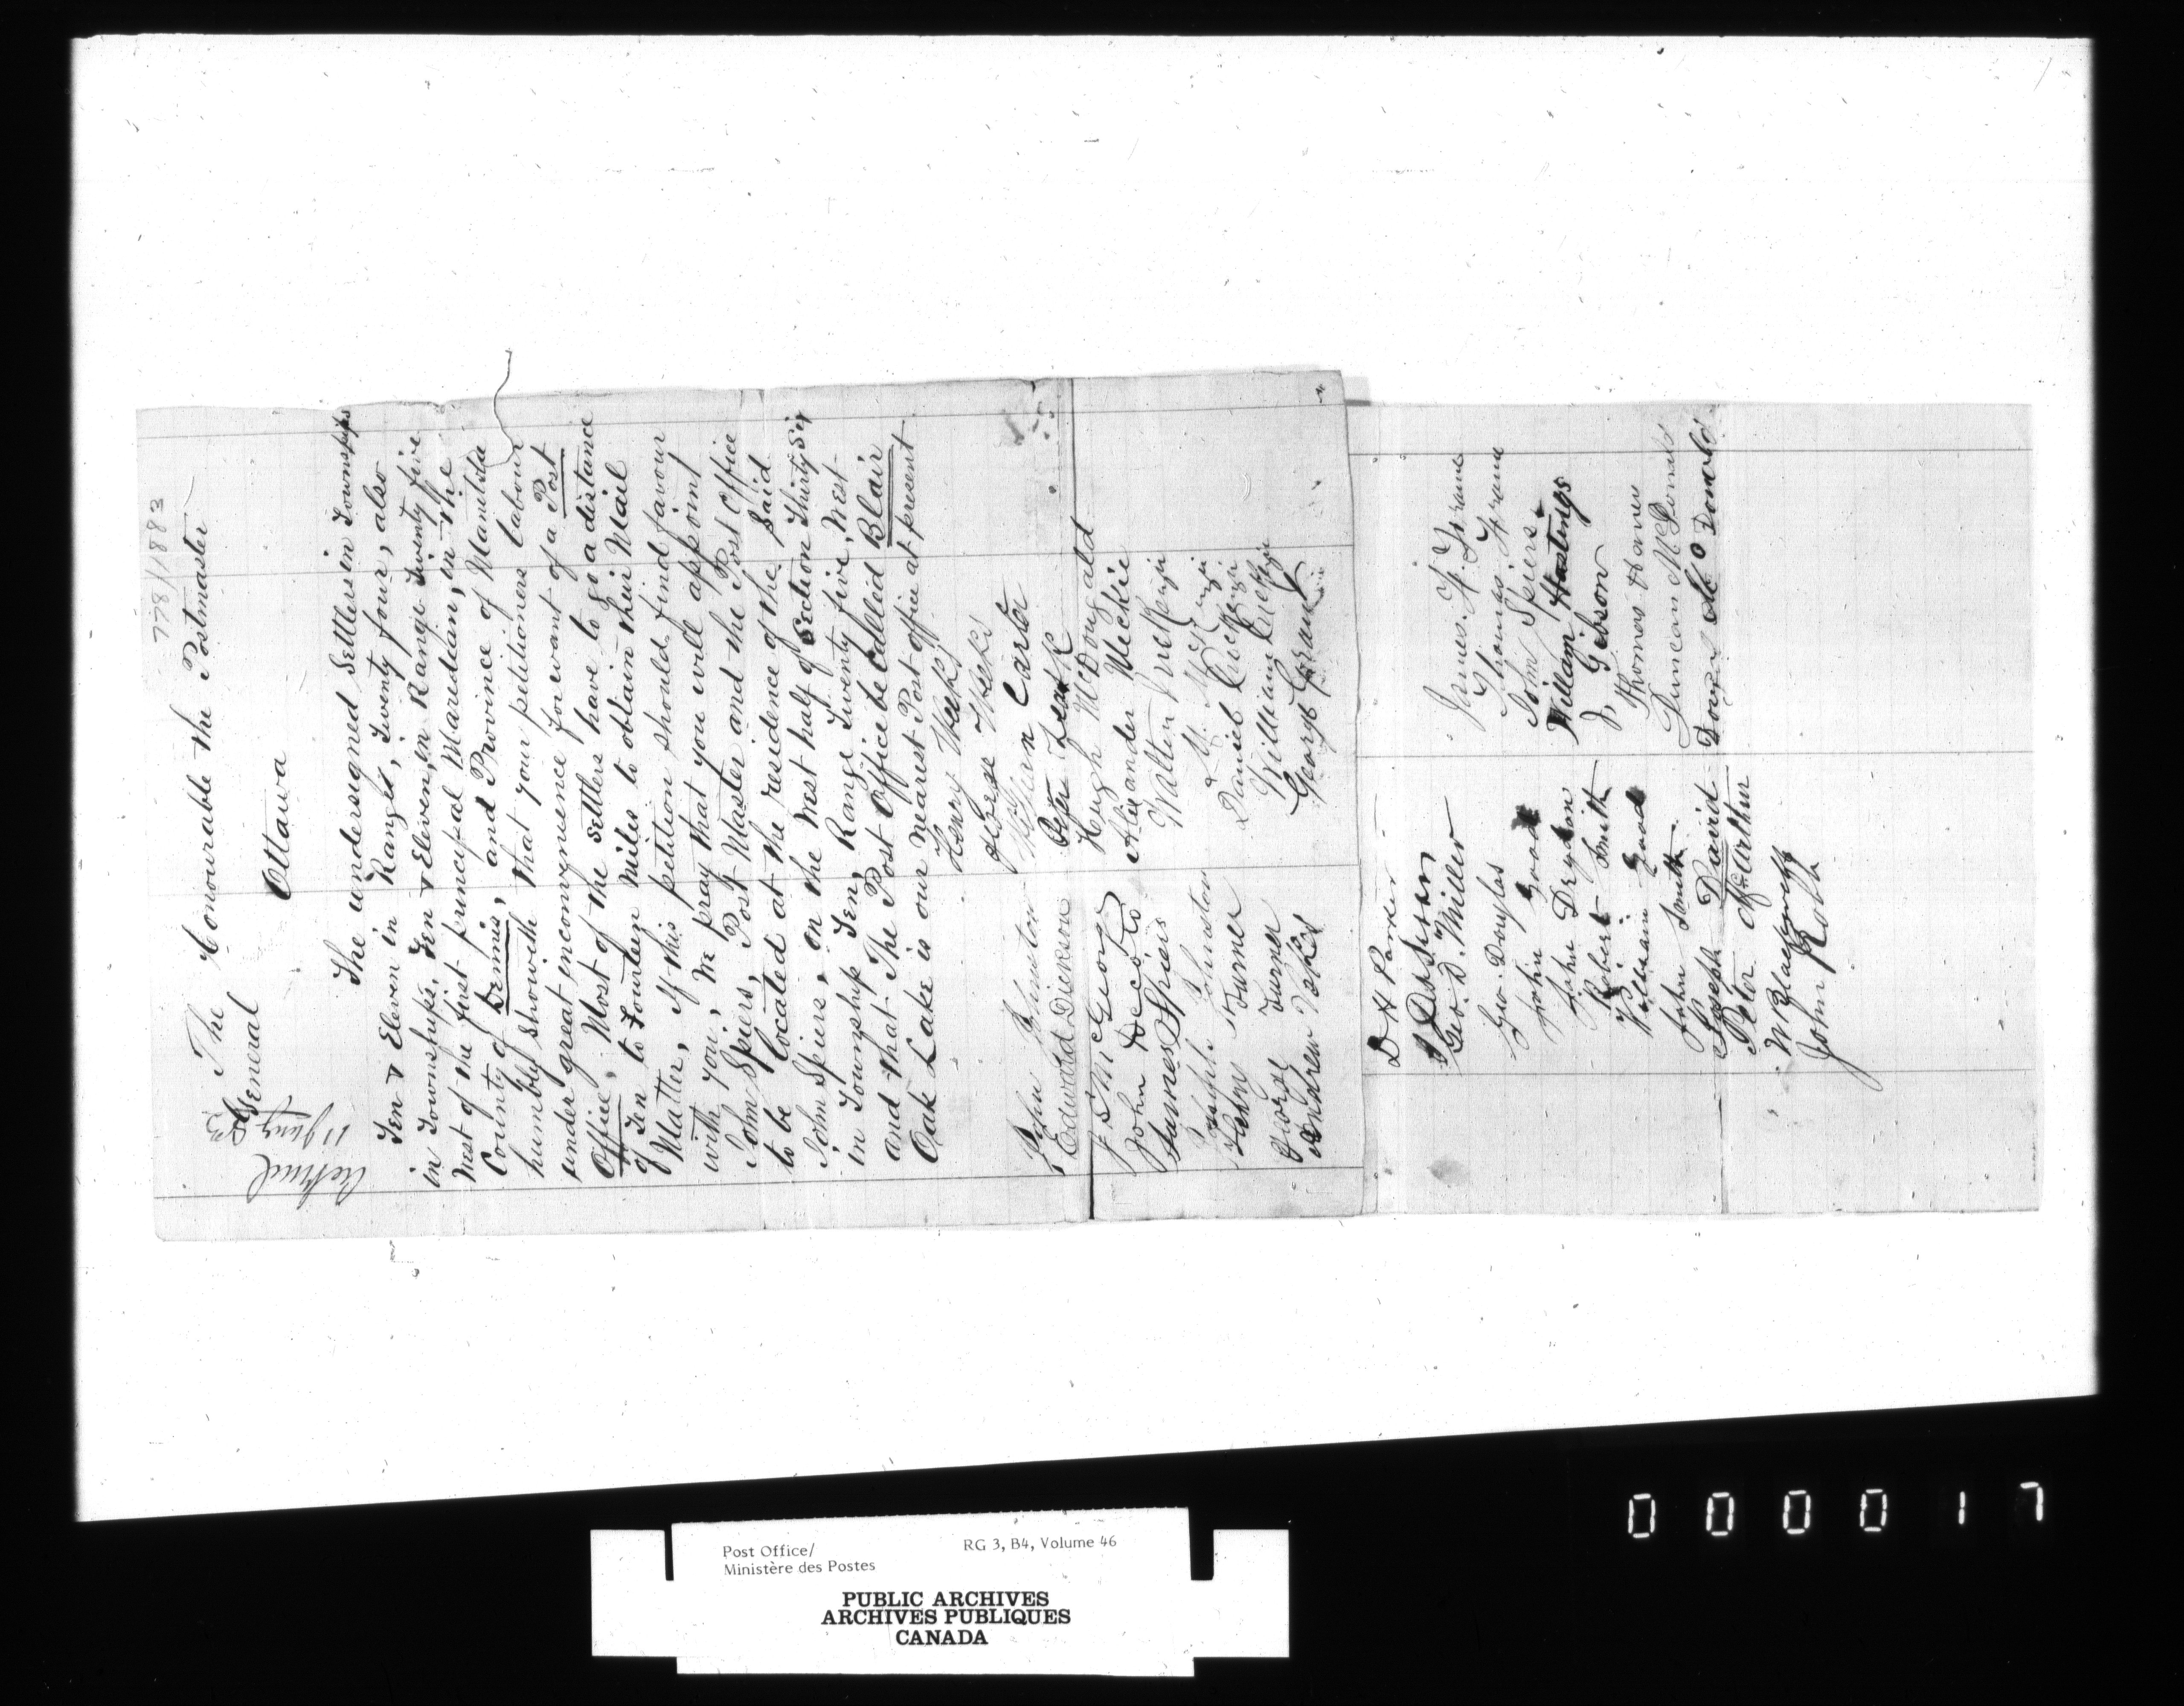 778/1883
The Honourable the Postmaster
General
Ottawa
11 Jany 83
The undersigned Settlers in Townships
Ten & Eleven in Range, Twenty four, also
in Townships, Ten & Eleven, in Range Twenty five
West of the first principal Maredian, in the
County of Dennis, and Province of Manitoba
humbly showeth that your petitioners labour
under great inconvenience for want of a Post
Office, Most of the settlers have to go a distance
of Ten to Fourteen Miles to obtain their Mail
Matter, If this petition should find favour
with you, We pray that you will appoint
John Spiers, Post Master and the Post Office
to be located at the residence of the Said
John Spiers, on the West half of Section Thirty Six
in Township Ten, Range Twenty five, West
and that The Post Office be called Blair
Oak Lake is our nearest Post office at present
Henry Weeks
George Weeks
William Carter
Peter Lenk
Hugh McDougald
Alexander Meckie
Walter McKenzie
Daniel McKenzie
William McKenzie
George Grant
John Johnston
Edward Dickson
John Decota
James Spiers
Joseph Johnston
Henry Turner
George Turner
Andrew Yokes
D H Porter
Geo. D. Miller
Geo. Douglas
John Good
John Drydon
Robert Smith
William Good
John Smith
Joseph David
Peter McArthur
John Robb
James. F. Frame
Thomas Frame
John Spiers
William Hastings
J, Gibson
Thomas Havens
Duncan McDonald
Dougald McDonald
000017
Post Office/
Ministère des Postes
RG 3, B4, Volume 46
PUBLIC ARCHIVES
ARCHIVES PUBLIQUES
CANADA